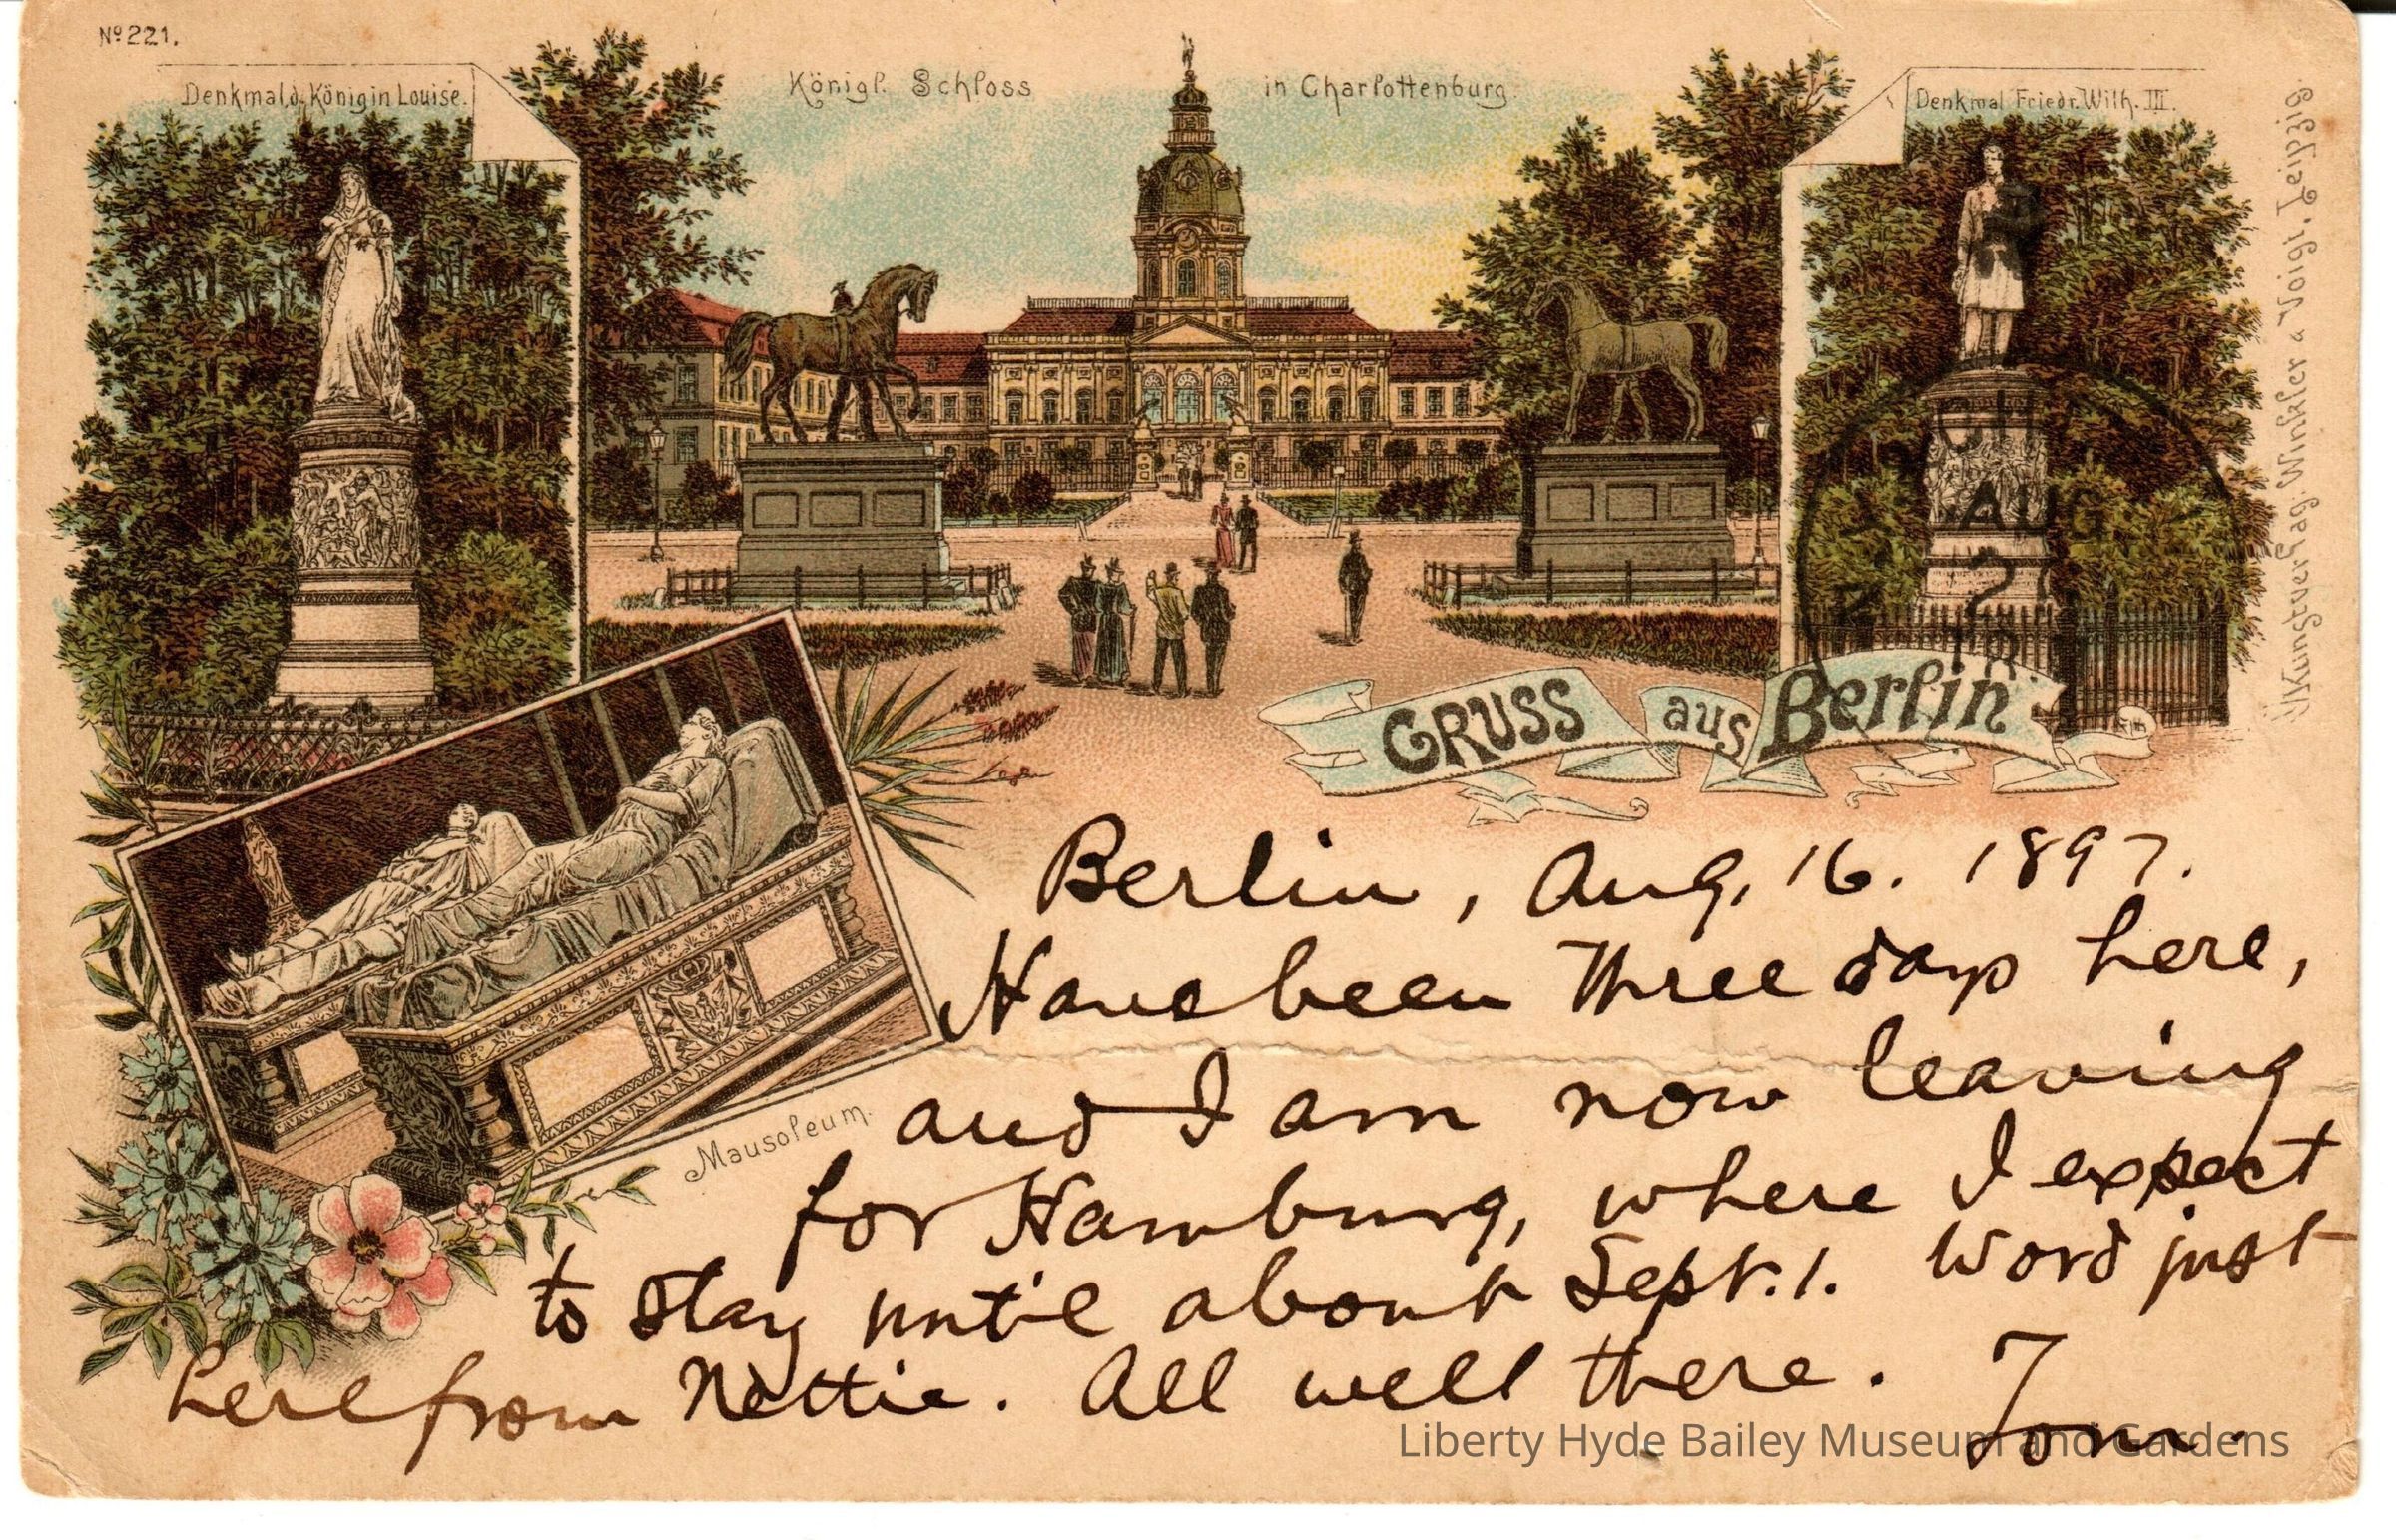 Nº 221.
Denkmal d. Königin Louise.
Königl. Schloss in Charlottenburg.
Denkmal Friedr. Wilh. III.
Kunstverlag: Winkler & Voigt. Leipzig.
AUG
2
GRUSS aus Berlin
Mausoleum.
Berlin, Aug, 16. 1897.
Have been three days here,
and I am now leaving
for Hamburg, where I expect
to stay until about Sept. 1. Word just
here from Nettie. All well there.
Tom.
Liberty Hyde Bailey Museum and Gardens